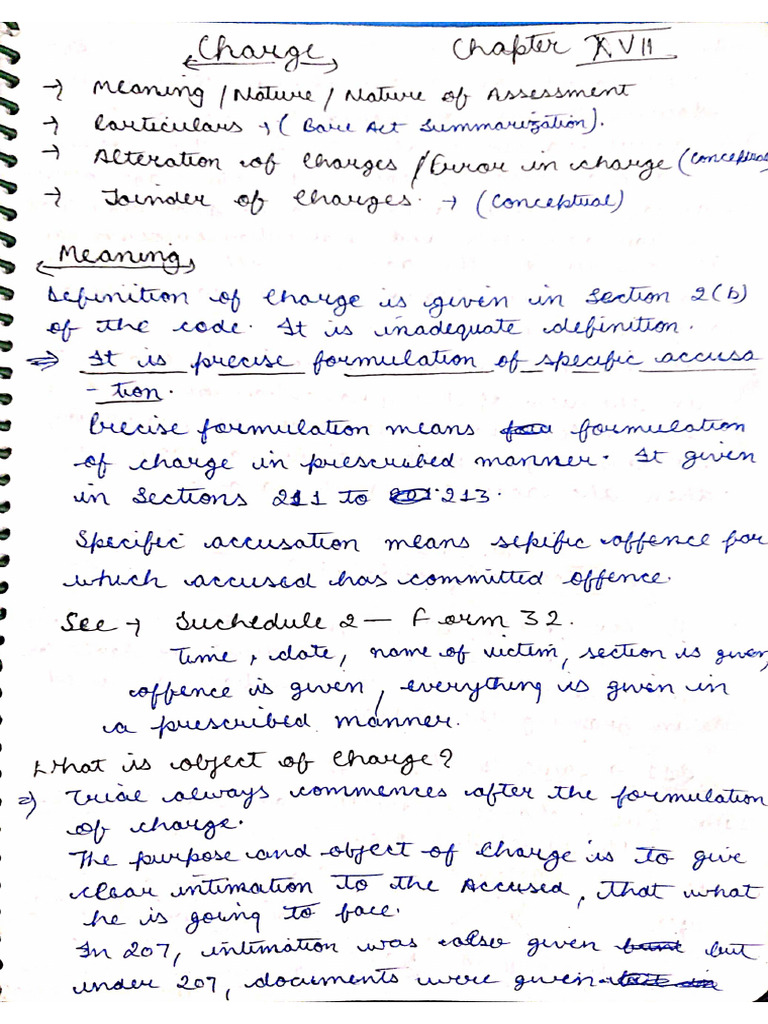 Charge Chapter XVII
→ Meaning / Nature / Nature of Assessment
→ Particulars → (Bare Act Summarization).
→ Alteration of Charges / Error in charge (Conceptual
→ Joinder of Charges. → (Conceptual)
Meaning
Definition of Charge is given in Section 2(b)
of the code. It is inadequate definition.
⇒ It is precise formulation of specific accusa
-tion.
Precise formulation means formulation
of charge in prescribed manner. It given
in Sections 211 to 213.
Specific accusation means sepific offence for
which accused has committed offence.
See → Suchedule 2 — Form 32.
Time, date, name of victim, section is given,
offence is given, everything is given in
a prescribed manner.
What is object of Charge?
⇒ Trial always commences after the formulation
of charge.
The purpose and object of Charge is to give
clear intimation to the Accused, that what
he is going to face.
In 207, intimation was also given but
under 207, documents were given